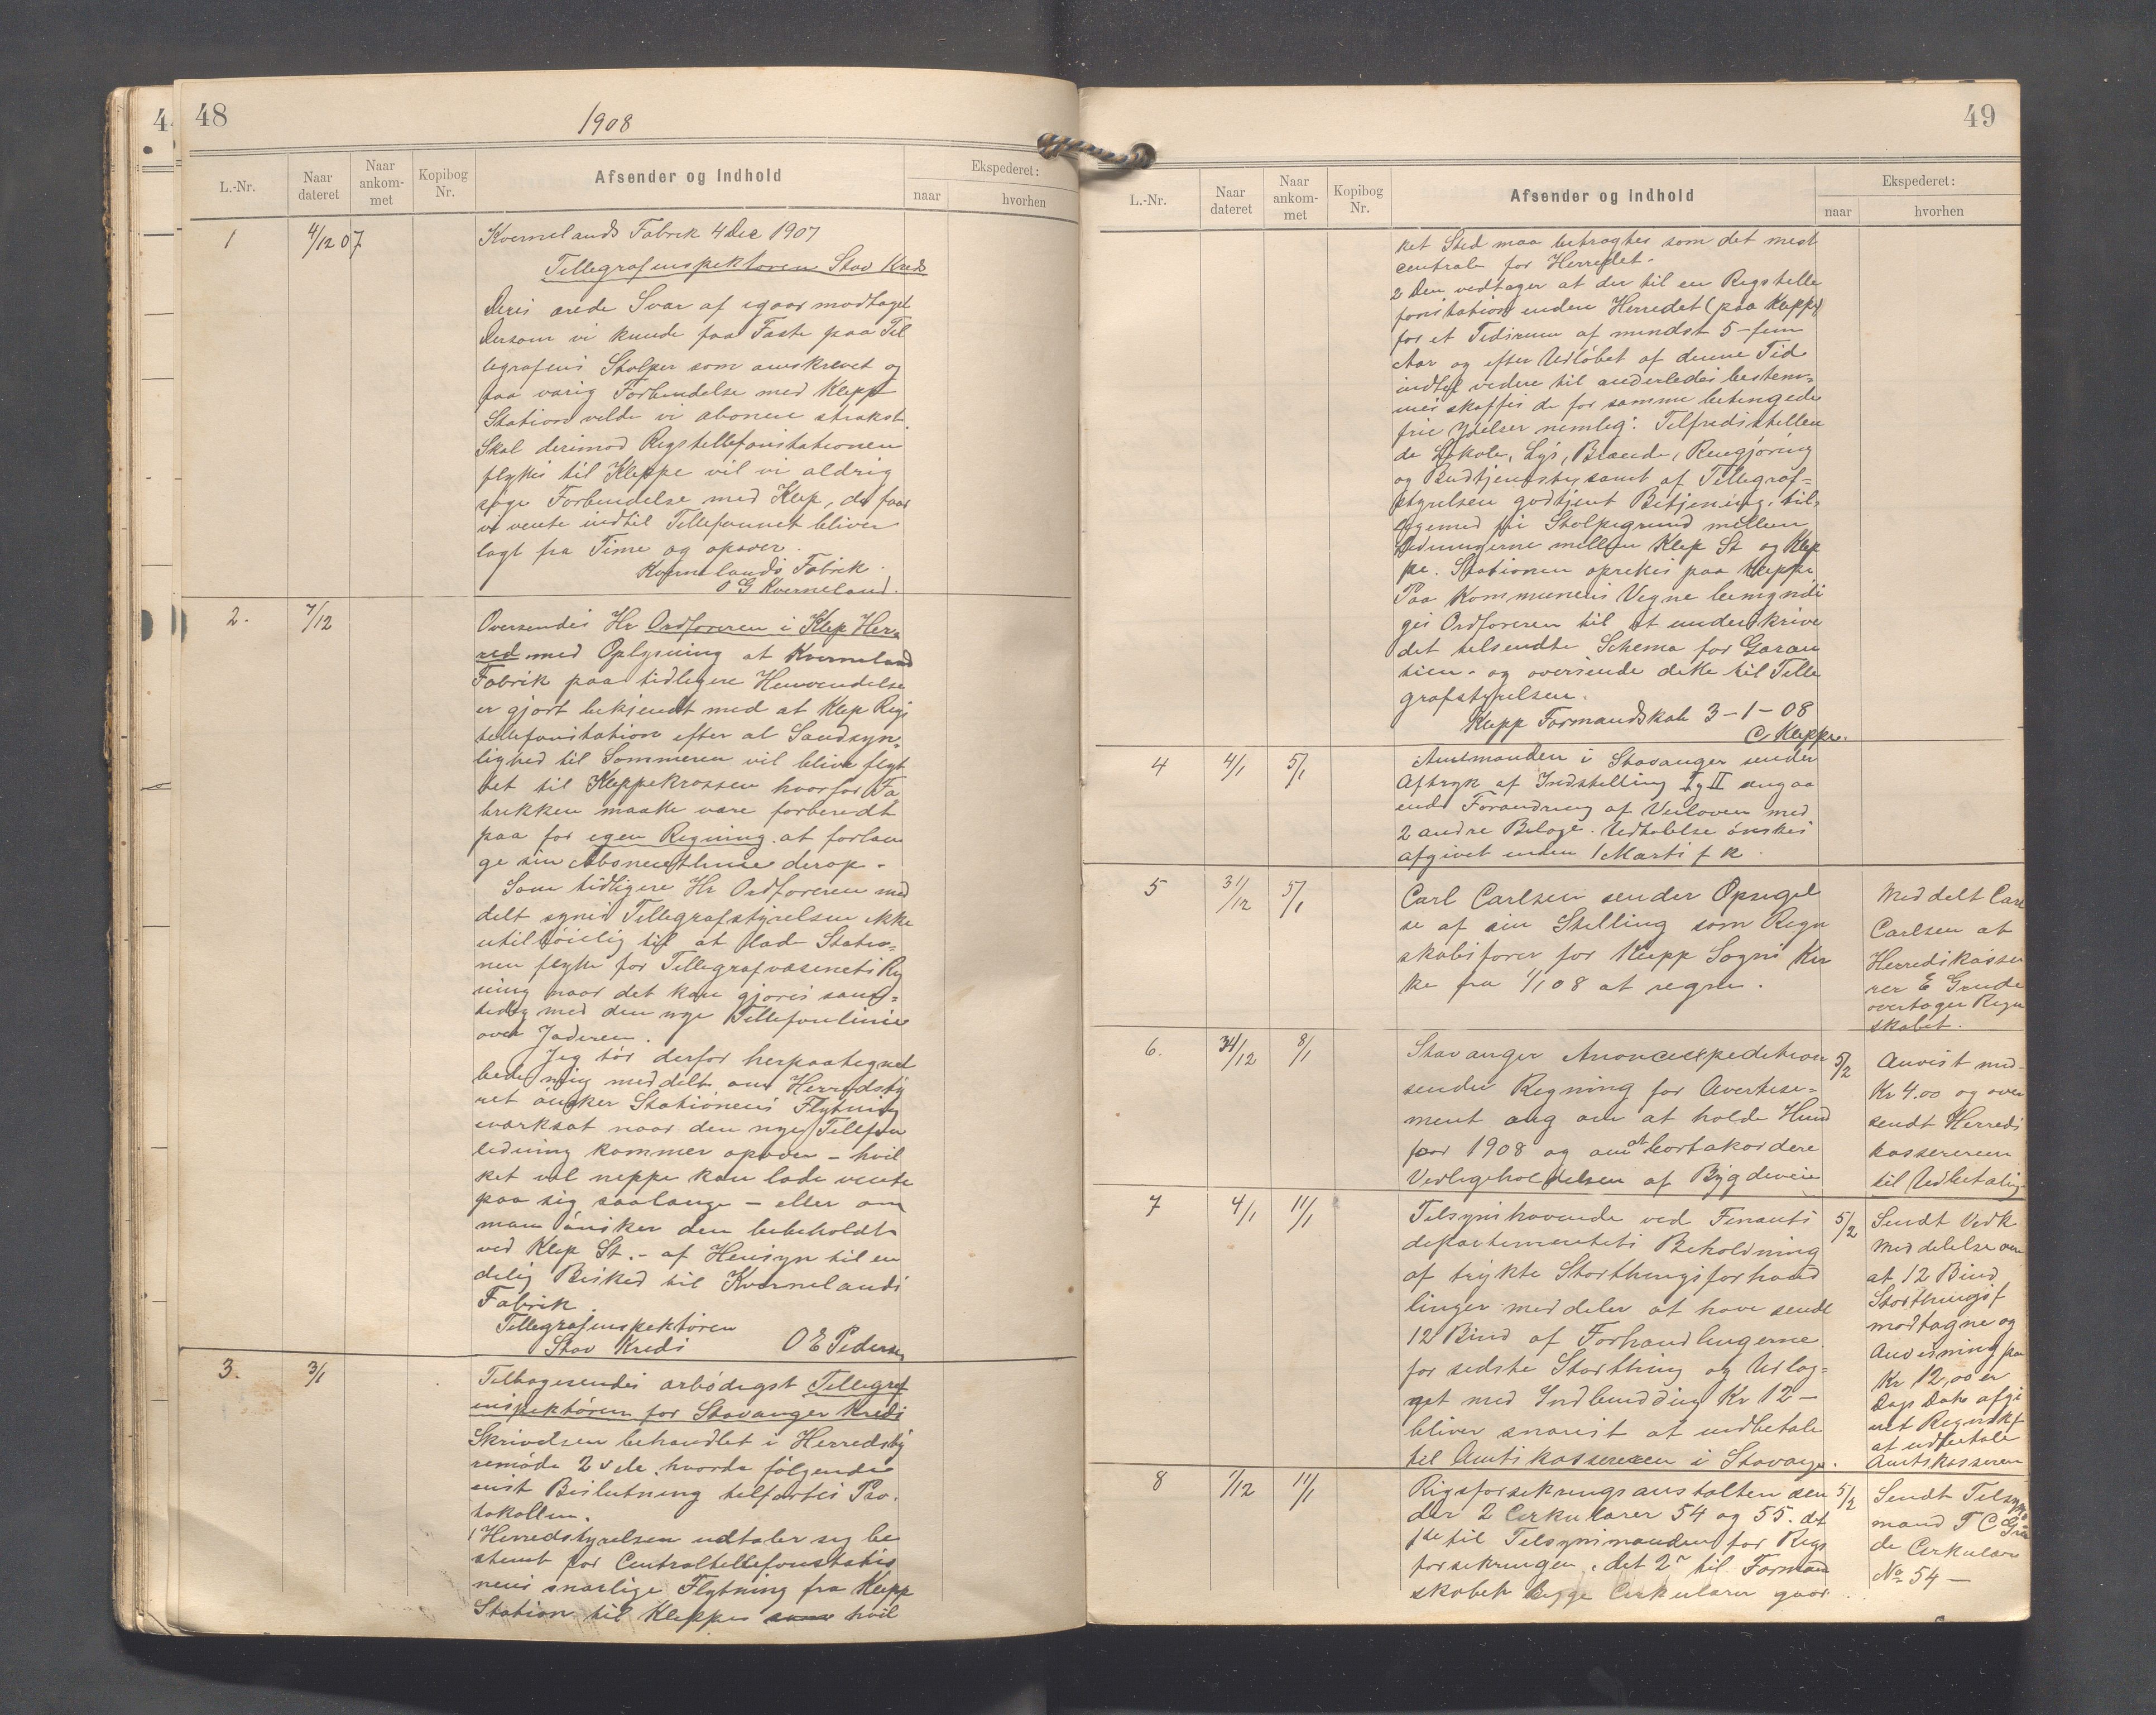 48
1908
L.-Nr.
Naar dateret
Naar ankom-met
Kopibog Nr.
Afsender og Indhold
Ekspederet:
naar
hvorhen
1
4/12 07
Kvernelands Fabrik 4 Dec 1907
Tellegrafinspektøren Stav Kreds
Deres ærede Svar af igaar modtaget
Dersom vi kunde faa Fæste paa Tel
legrafens Stolper som omskrevet og
faa varig Forbindelse med Klepp
Station vilde vi abonere straks.
Skal derimod Rigstellefonstationen
flyttes til Kleppe vil vi aldrig
søge Forbindelse med Klep, da faar
vi vente indtil Tellefonnet bliver
lagt fra Time og opover.
Kvernelands Fabrik.
O G Kverneland.
2.
7/12
Oversendes Hr Ordføreren i Klep Her=
red med Oplysning at Kverneland
Fabrik paa tidligere Henvendelse
er gjort bekjendt med at Klep Rigs
tellefonstation efter al Sandsyn=
lighed til Sommeren vil blive flyt
tet til Kleppekrossen hvorfor Fa
brikken maatte være forberedt
paa for egen Regning at forlæn
ge sin Abonnentlinie derop.
Som tidligere Hr Ordføreren med
delt synes Tellegrafstyrelsen ikke
utilbøielig til at lade Statio=
nen flytte for Tellegrafvæsenets Reg
ning naar det kan gjøres sam=
tidig med den nye Tellefonlinie
over Jæderen.
Jeg tør derfor herpaategnet
bede mig meddelt om Herredsty
ret ønsker Stationens Flytning
iværksat naar den nye Tellefon
ledning kommer opover - hvil
ket vel neppe kan lade vente
paa sig saalænge - eller om
man ønsker den bibeholdt
ved Klep St. - af Hensyn til en
delig Besked til Kvernelands
Fabrik.
Tellegrafinspektøren
Stav Kreds O E Pedersen
3.
3/1
Tilbagesendes ærbødigst Tellegraf
inspektøren for Stavanger Kreds
Skrivelsen behandlet i Herredsty
remøde 2 ds hvorda følgende
enst Beslutning tilførtes Pro.
tokollen.
1 Herredstyrelsen udtaler sig be
stemt for Centraltellefonstatio
nens snarlige Flytning fra Klepp
Station til Kleppe som hvil
49
L.-Nr.
Naar dateret
Naar ankom-met
Kopibog Nr.
Afsender og Indhold
Ekspederet:
naar
hvorhen
ket Sted maa betragtes som det mest
centrale for Herredet.
2 Den vedtager at der til en Rigstelle
fonstation inden Herredet (paa Kleppe)
for et Tidsrum af mindst 5-fem
Aar og efter Udløbet af denne Tid
indtil videre til anderledes bestem=
mes skaffes de for samme betingede
frie Ydelser nemlig: Tilfredsstillen
de Lokale, Lys, Brænde, Rengjøring
og Budtjeneste samt af Tellegraf=
styrelsen godkjent Betjening, til=
ligemed fri Stolpegrund mellem
Ledningerne mellem Klep St og Klep
pe. Stationen oprettes paa Kleppe
Paa Kommunens Vegne bemyndi
ges Ordføreren til at underskrive
det tilsendte Schema for Garan
tien. og oversende dette til Telle
grafstyrelsen.
Klepp Formandskab 3-1-08
C Kleppe.
4
4/1
5/1
Amtmanden i Stavanger sender
Aftryk af Indstilling I og II angaa
ende Forandring af Veiloven med
2 andre Bilage. Udtalelse ønskes
afgivet inden 1 Marts f k.
5
31/12
5/1
Carl Carlsen sender Opsigel
se af sin Stilling som Regn
skabsfører for Klepp Sogns Kir
ke fra 1/1 08 at regne.
Meddelt Carl
Carlsen at
Herredskasse
rer E Grude
overtager Regn
skabet.
6.
31/12
8/1
Stavanger Anonceexpedition
sender Regning for Avertise=
ment ang om at holde Hund
for 1908 og om at bortakordere
Vedligeholdelsen af Bygdeveie
5/2
Anvist med
Kr 4.00 og over
sendt Herreds
kassereren
til Udbetaling
7
4/1
11/1
Tilsynshavende ved Finants
departementets Beholdning
af trykte Storthingsforhand
linger meddeler at have sendt
12 Bind af Forhandlingerne
for sidste Storthing og Udlæg=
get med Indbinding Kr 12-
bliver snarest at indbetale
til Amtskassereren i Stavanger.
5/2
Sendt Vedk
Meddelelse om
at 12 Bind
Storthingsf
modtagne og
Anvisning paa
Kr 12,00 er
Dags Dato afgi
vet Regnskf
at indbetale
Amtskasseren
8
7/12
11/1
Rigsforsikringsanstalten sen
der 2 Cirkulærer 54 og 55. det
1ste til Tilsynsmanden for Rigs
forsikringen, det 2 til Forman
skabet begge Cirkulærer gaar
5/2
Sendt Tilsyns
mand T C Gru
de Cirkulære
No 54-